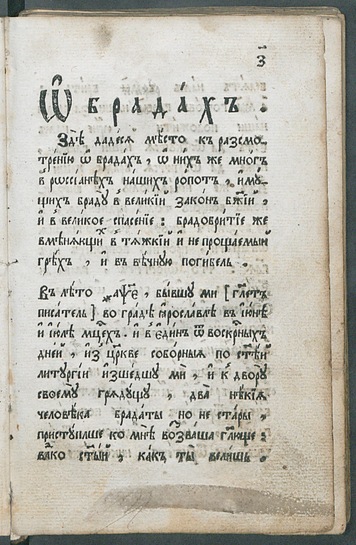 з҃
Ѿ брада́хъ .
Здѣ̀ дадеся мѣсто къ разсмо-
тренїю ѿ брадахъ , ѿ ни́хъ же многъ
в рѡссїанѣхъ нашихъ ропотъ , и҆мꙋ-
щихъ брадꙋ̀ в великїй законъ бж҃їй ,
и҆ в великое спасенїе : брадобритїе же
вмѣняющихъ в тѧжкїй и҆ не прощаемый
грѣ́хъ , и҆ в вѣчнꙋю погибель .
Въ лѣто ҂аѱѯ҃є , бывшꙋ ми [ гл҃етъ
писатель ] во градѣ ꙗ҆рославлѣ в і҆ю́нѣ
и҆ і҆ю́лѣ мц҃ехъ . и҆ в є҆ди́нъ ѿ воскр҇ныхъ
дней , и҆з̾ цр҃кве соборныѧ по ст҃ѣй
литꙋргїи и҆зшедшꙋ ми , и҆ к двору
своемꙋ̀ грядꙋщꙋ , два̀ нѣ́кїѧ
человѣка брадаты но не стары ,
пристꙋпльше ко мнѣ̀ возваша гл҃юще :
вл҃ко ст҃ы́й , ка́къ ты̀ велишь ,